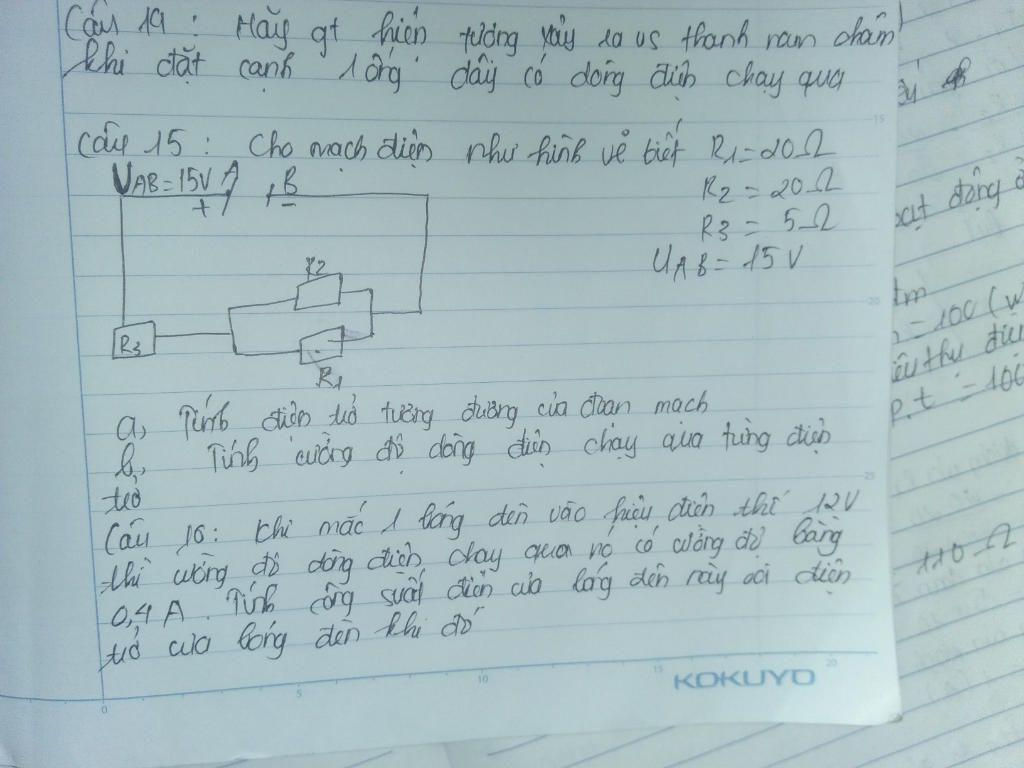 Câu 14 : Hãy gt hiện tượng xảy ra vs thanh nam châm
khi đặt cạnh 1 ống dây có dòng điện chạy qua
Câu 15 : Cho mạch điện như hình vẽ biết R1 = 20Ω
R2 = 20Ω
R3 = 5Ω
UAB = 15V
UAB = 15V A B
+ −
R2
R3
R1
a, Tính điện trở tương đương của đoạn mạch
b, Tính cường độ dòng điện chạy qua từng điện
trở
Câu 16 : Khi mắc 1 bóng đèn vào hiệu điện thế 12V
thì cường độ dòng điện chạy qua nó có cường độ bằng
0,4 A. Tính công suất điện của bóng đèn này với điện
trở của bóng đèn khi đó
0 5 10 15 20
KOKUYO
15
20
25
động
= 100 (W
thụ điện
p.t = 100
110 Ω